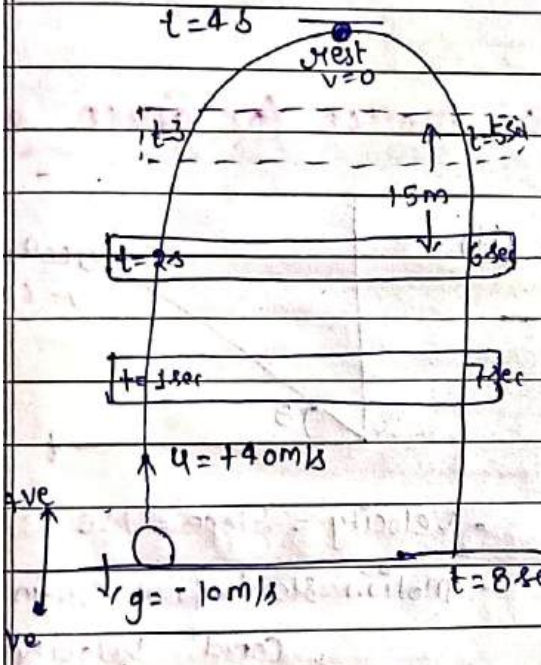 t=4s
rest
v=0
t=3
t=5s
15m
t=2s
6sec
t=1sec
7sec
u=+40m/s
+ve
g=-10m/s
t=8se
ve